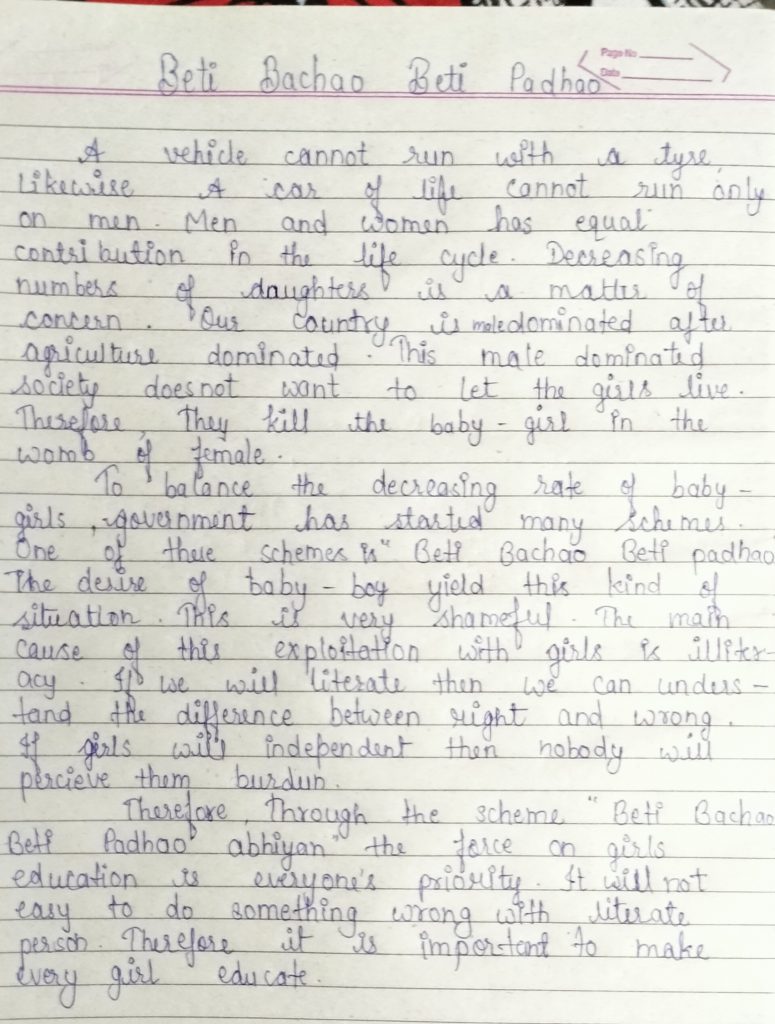 Page No
Date
Beti Bachao Beti Padhao
A vehicle cannot run with a tyre,
likewise A car of life cannot run only
on men. Men and women has equal
contribution in the life cycle. Decreasing
numbers of daughters is a matter of
concern. Our country is male dominated after
agriculture dominated. This male dominated
society doesnot want to let the girls live.
Therefore, They kill the baby - girl in the
womb of female.
To balance the decreasing rate of baby -
girls, government has started many schemes.
One of these schemes is " Beti Bachao Beti padhao
The desire of baby - boy yield this kind of
situation. This is very shameful. The main
cause of this exploitation with girls is illiter-
acy. If we will literate then we can unders -
tand the difference between right and wrong.
If girls will independent then nobody will
percieve them burdun.
Therefore, Through the scheme " Beti Bachao
Beti Padhao abhiyan" the force on girls
education is everyone's priority. It will not
easy to do something wrong with literate
person. Therefore it is important to make
every girl educate.